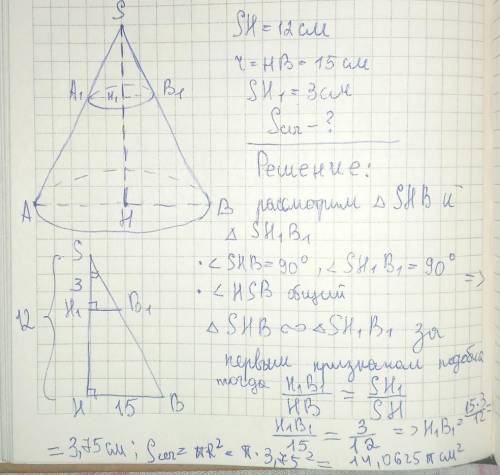 S
SH = 12 см
r = HB = 15 см
SH₁ = 3 см
Sсеч - ?
A₁ H₁ B₁
Решение:
A H B
рассмотрим △ SHB и
△ SH₁B₁
S
• ∠SHB = 90°, ∠SH₁B₁ = 90° =>
• ∠HSB общий
3
H₁ B₁
12
△SHB ∾ △SH₁B₁ за
первым признаком подобия
тогда H₁B₁/HB = SH₁/SH
H 15 B
H₁B₁/15 = 3/12 => H₁B₁ = 15·3/12 =
= 3,75 см; Sсеч = πR² = π · 3,75² = 14,0625π см²